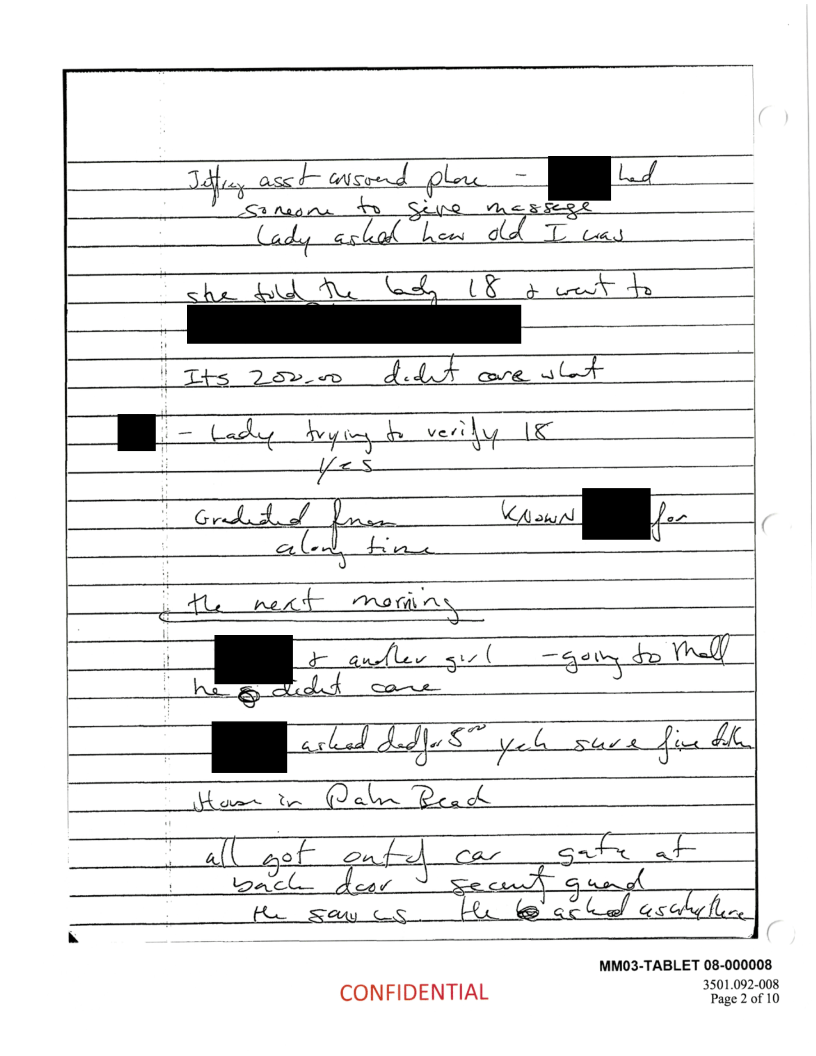 Jeffrey asst answered phone - had
someone to give message
Lady asked how old I was
she told the lady 18 & went to
Its 200.00 didnt care what
- Lady trying to verify 18
yes
Graduated from KNOWN for
a long time
the next morning
& another girl - going to Mall
he didnt care
asked dad for 5.00 yeh sure five
House in Palm Beach
all got out of car gate at
back door guard
He saw us He asked us why there
MM03-TABLET 08-000008
3501.092-008
CONFIDENTIAL
Page 2 of 10